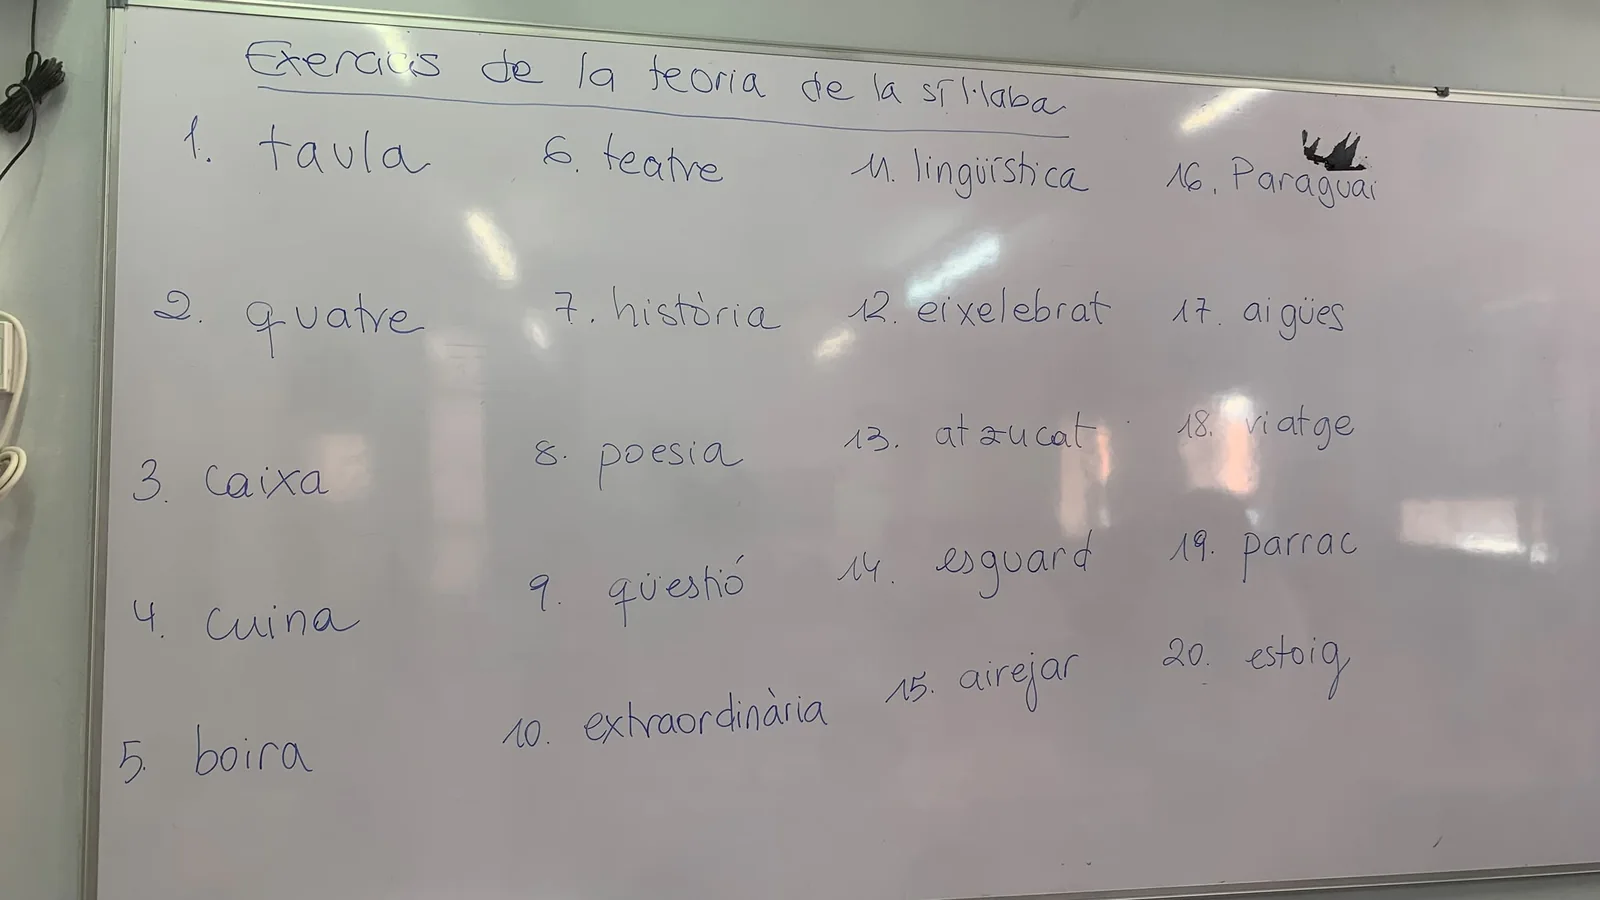 Exercicis de la teoria de la síl·laba
1. taula
2. quatre
3. caixa
4. cuina
5. boira
6. teatre
7. història
8. poesia
9. qüestió
10. extraordinària
11. lingüística
12. eixelebrat
13. atzucat
14. esguard
15. airejar
16. Paraguai
17. aigües
18. viatge
19. parrac
20. estoig